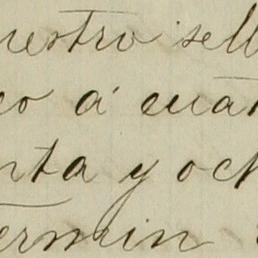 uestro sell
eo á cuat
nta y och
ermin